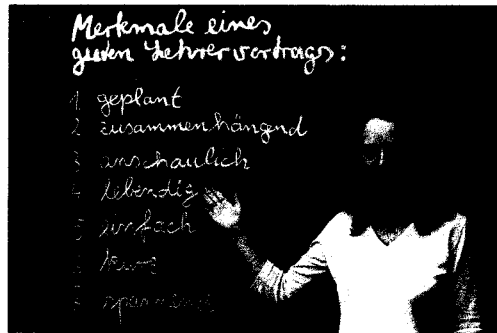 Merkmale eines
guten Lehrervortrags:
1 geplant
2 zusammenhängend
3 anschaulich
4 lebendig
5 einfach
6 kurz
7 spannend